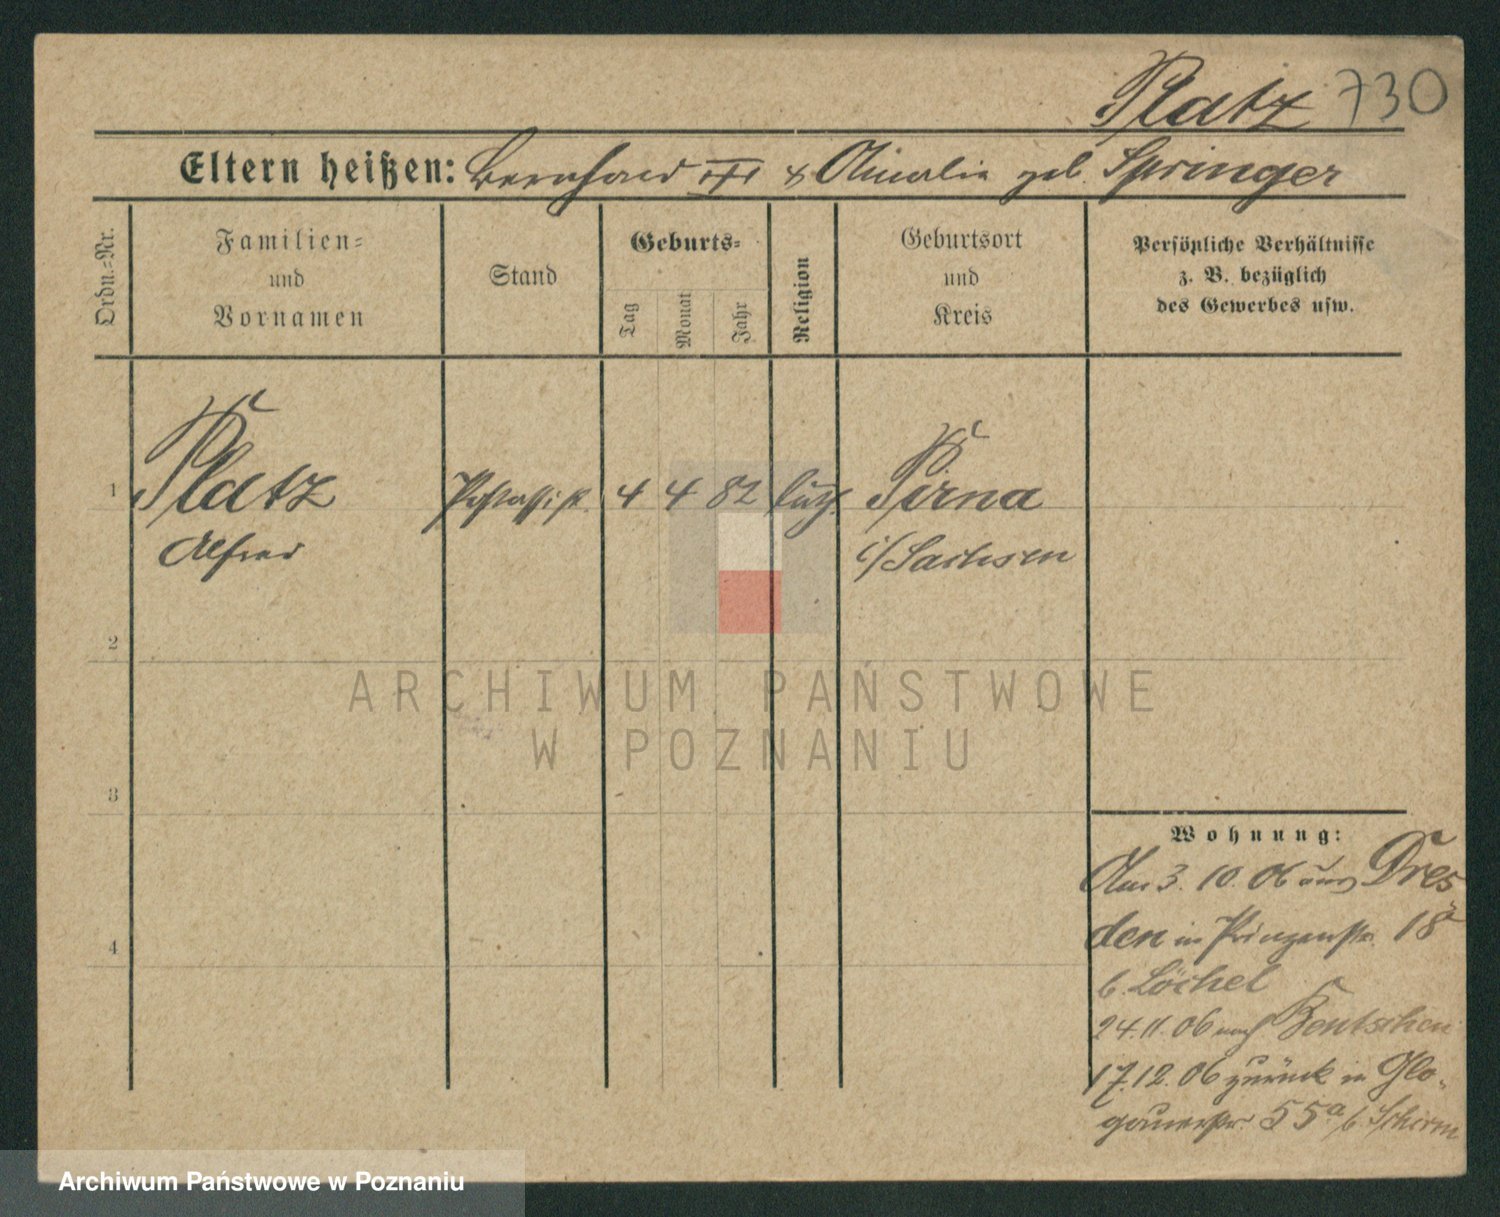 Platz 730
Eltern heißen: Bernhard & Amalie geb. Springer
Ordn.-Nr.
Familien-
und
Vornamen
Stand
Geburts-
Tag
Monat
Jahr
Religion
Geburtsort
und
Kreis
Persönliche Verhältnisse
z. B. bezüglich
des Gewerbes usw.
1 Platz Postassist. 4 4 82 luth. Pirna
Alfred i/Sachsen
2
3
4
ARCHIWUM PAŃSTWOWE
W POZNANIU
Wohnung:
Am 3. 10. 06 aus Dres
den in Prinzenstr. 18a
b. Löchel
24.11.06 nach Bentschen
17.12.06 zurück in Glo-
gauerstr. 55a b. Schirm
Archiwum Państwowe w Poznaniu